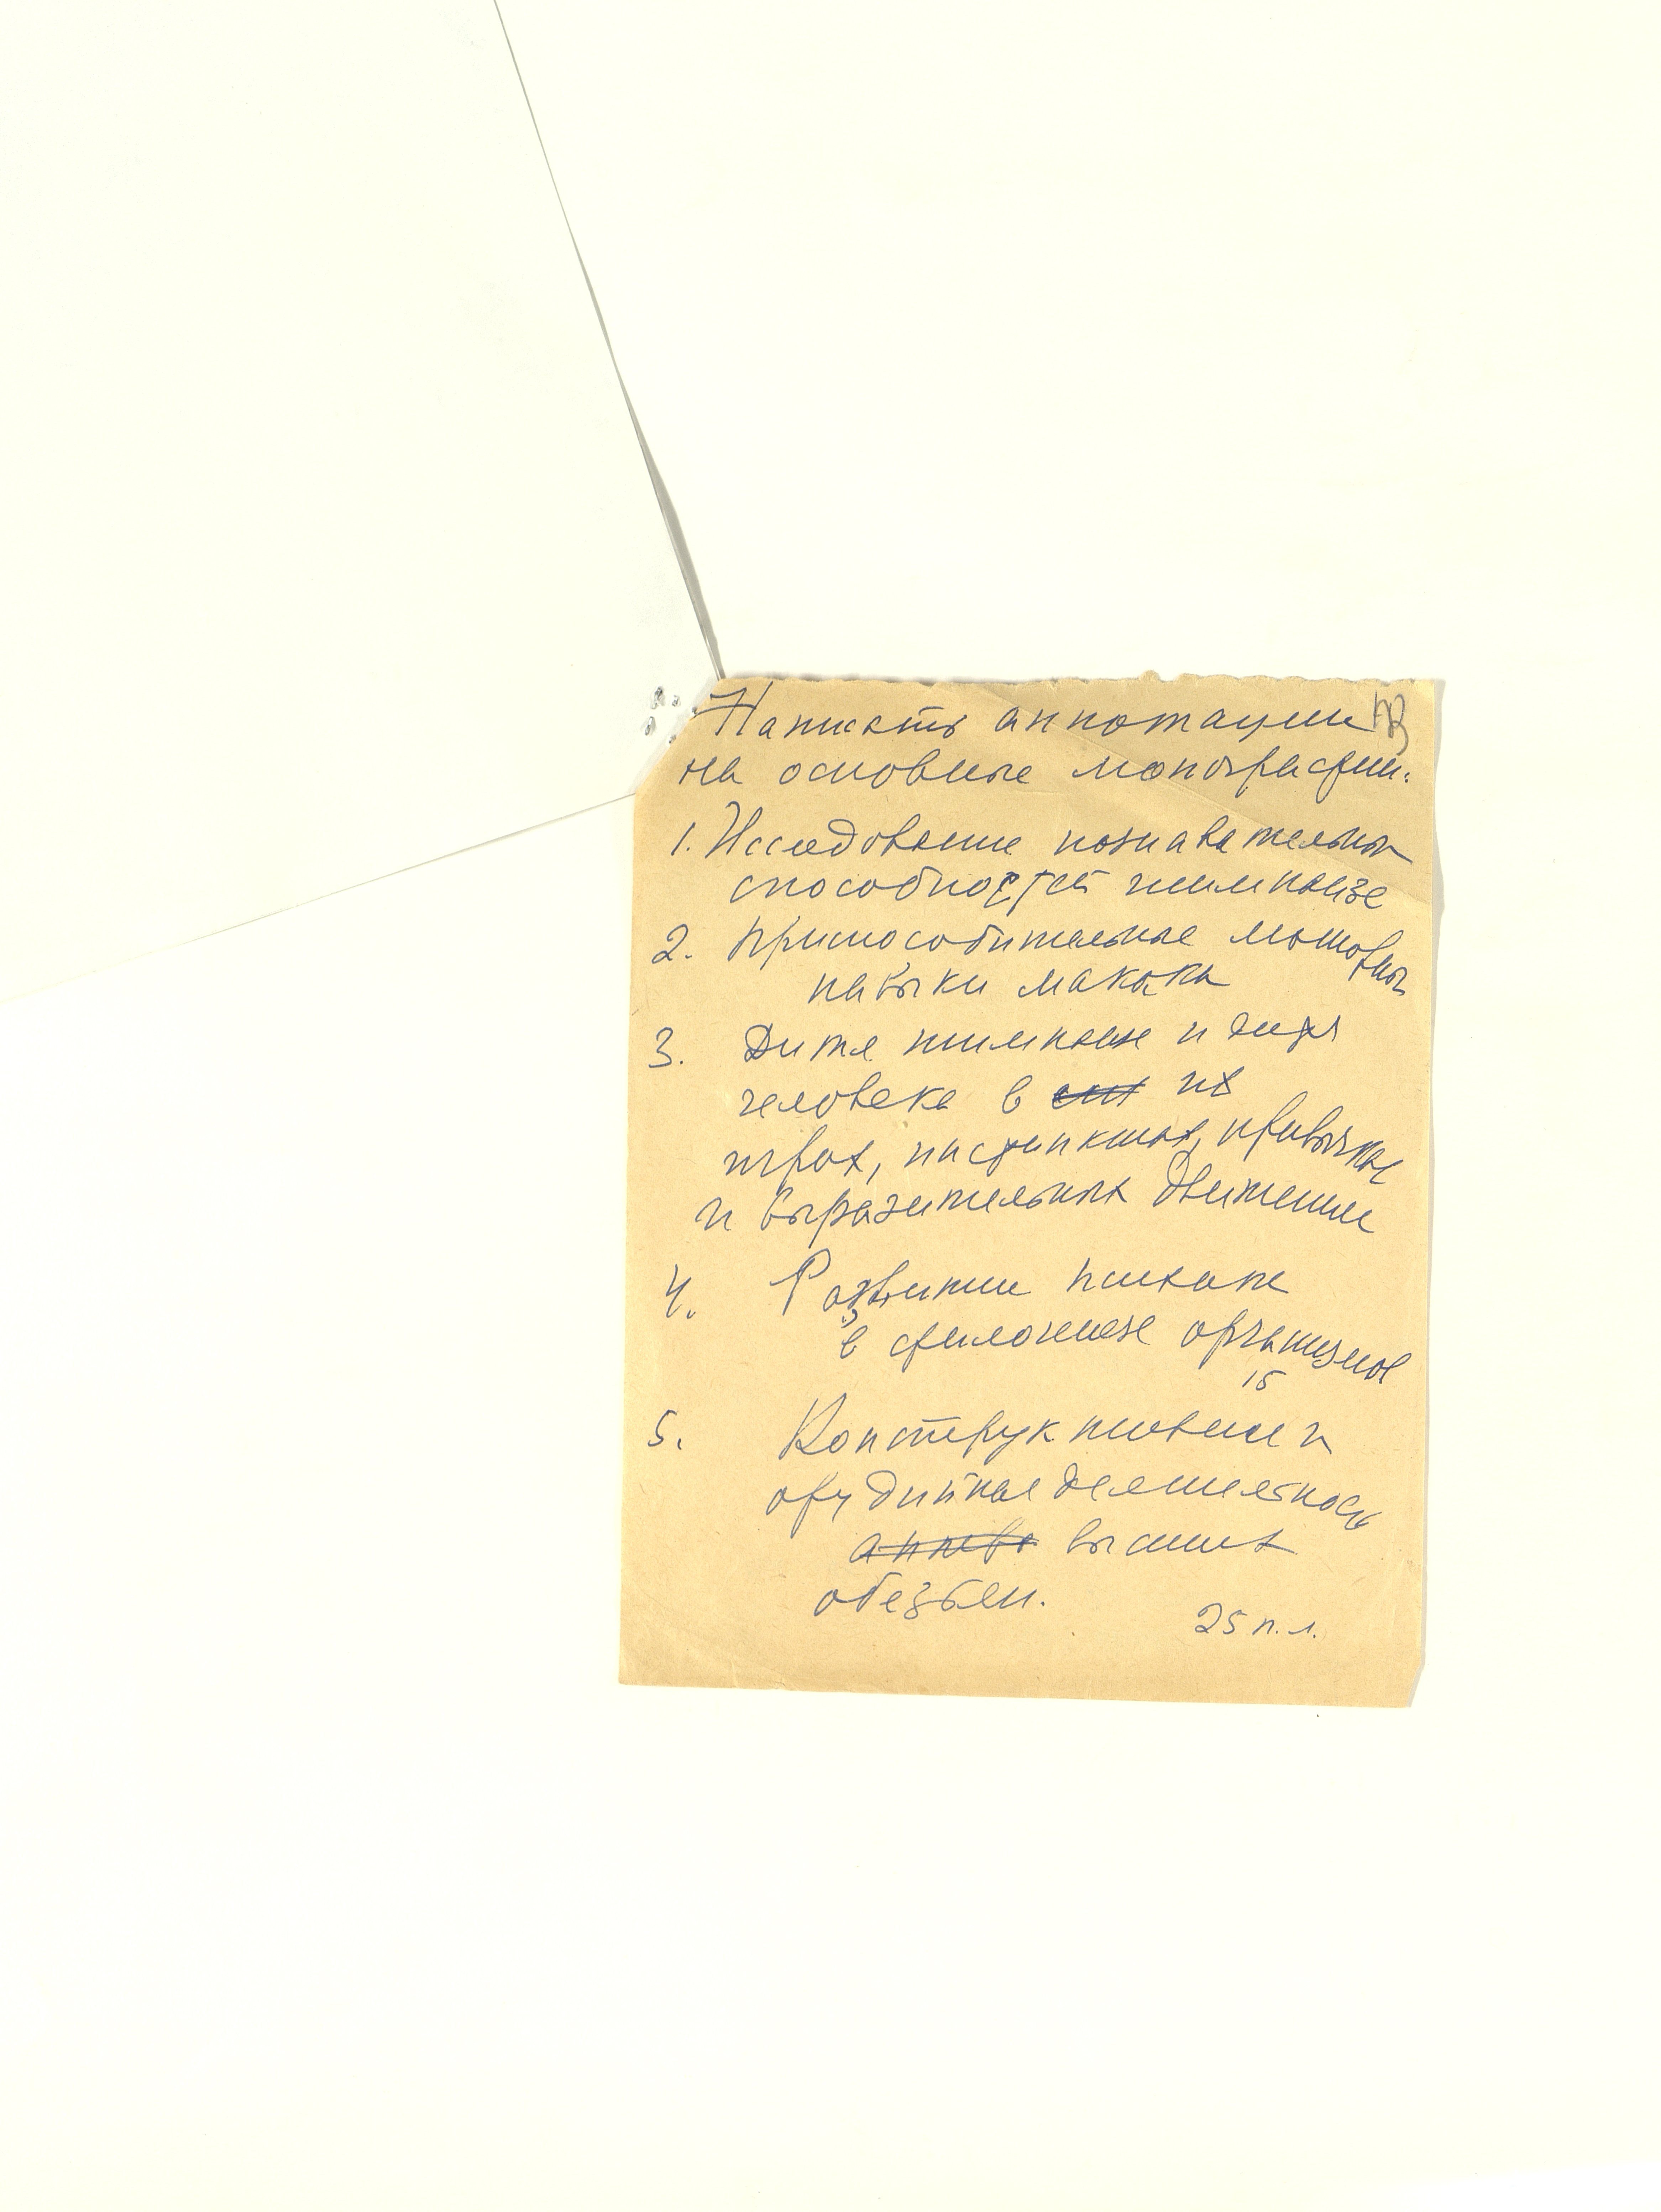 Написать аннотации
на основные монографии:
1. Исследование познавательных
способностей шимпанзе
2. Приспособительные моторные
навыки макака
3. Дитя шимпанзе и дитя
человека в их
играх, инстинктах, привычках
и выразительных движениях
4. Развитие психики
в филогенезе организмов
15
5. Конструктивная и
орудийная деятельность
высших
обезьян.
25 п. л.